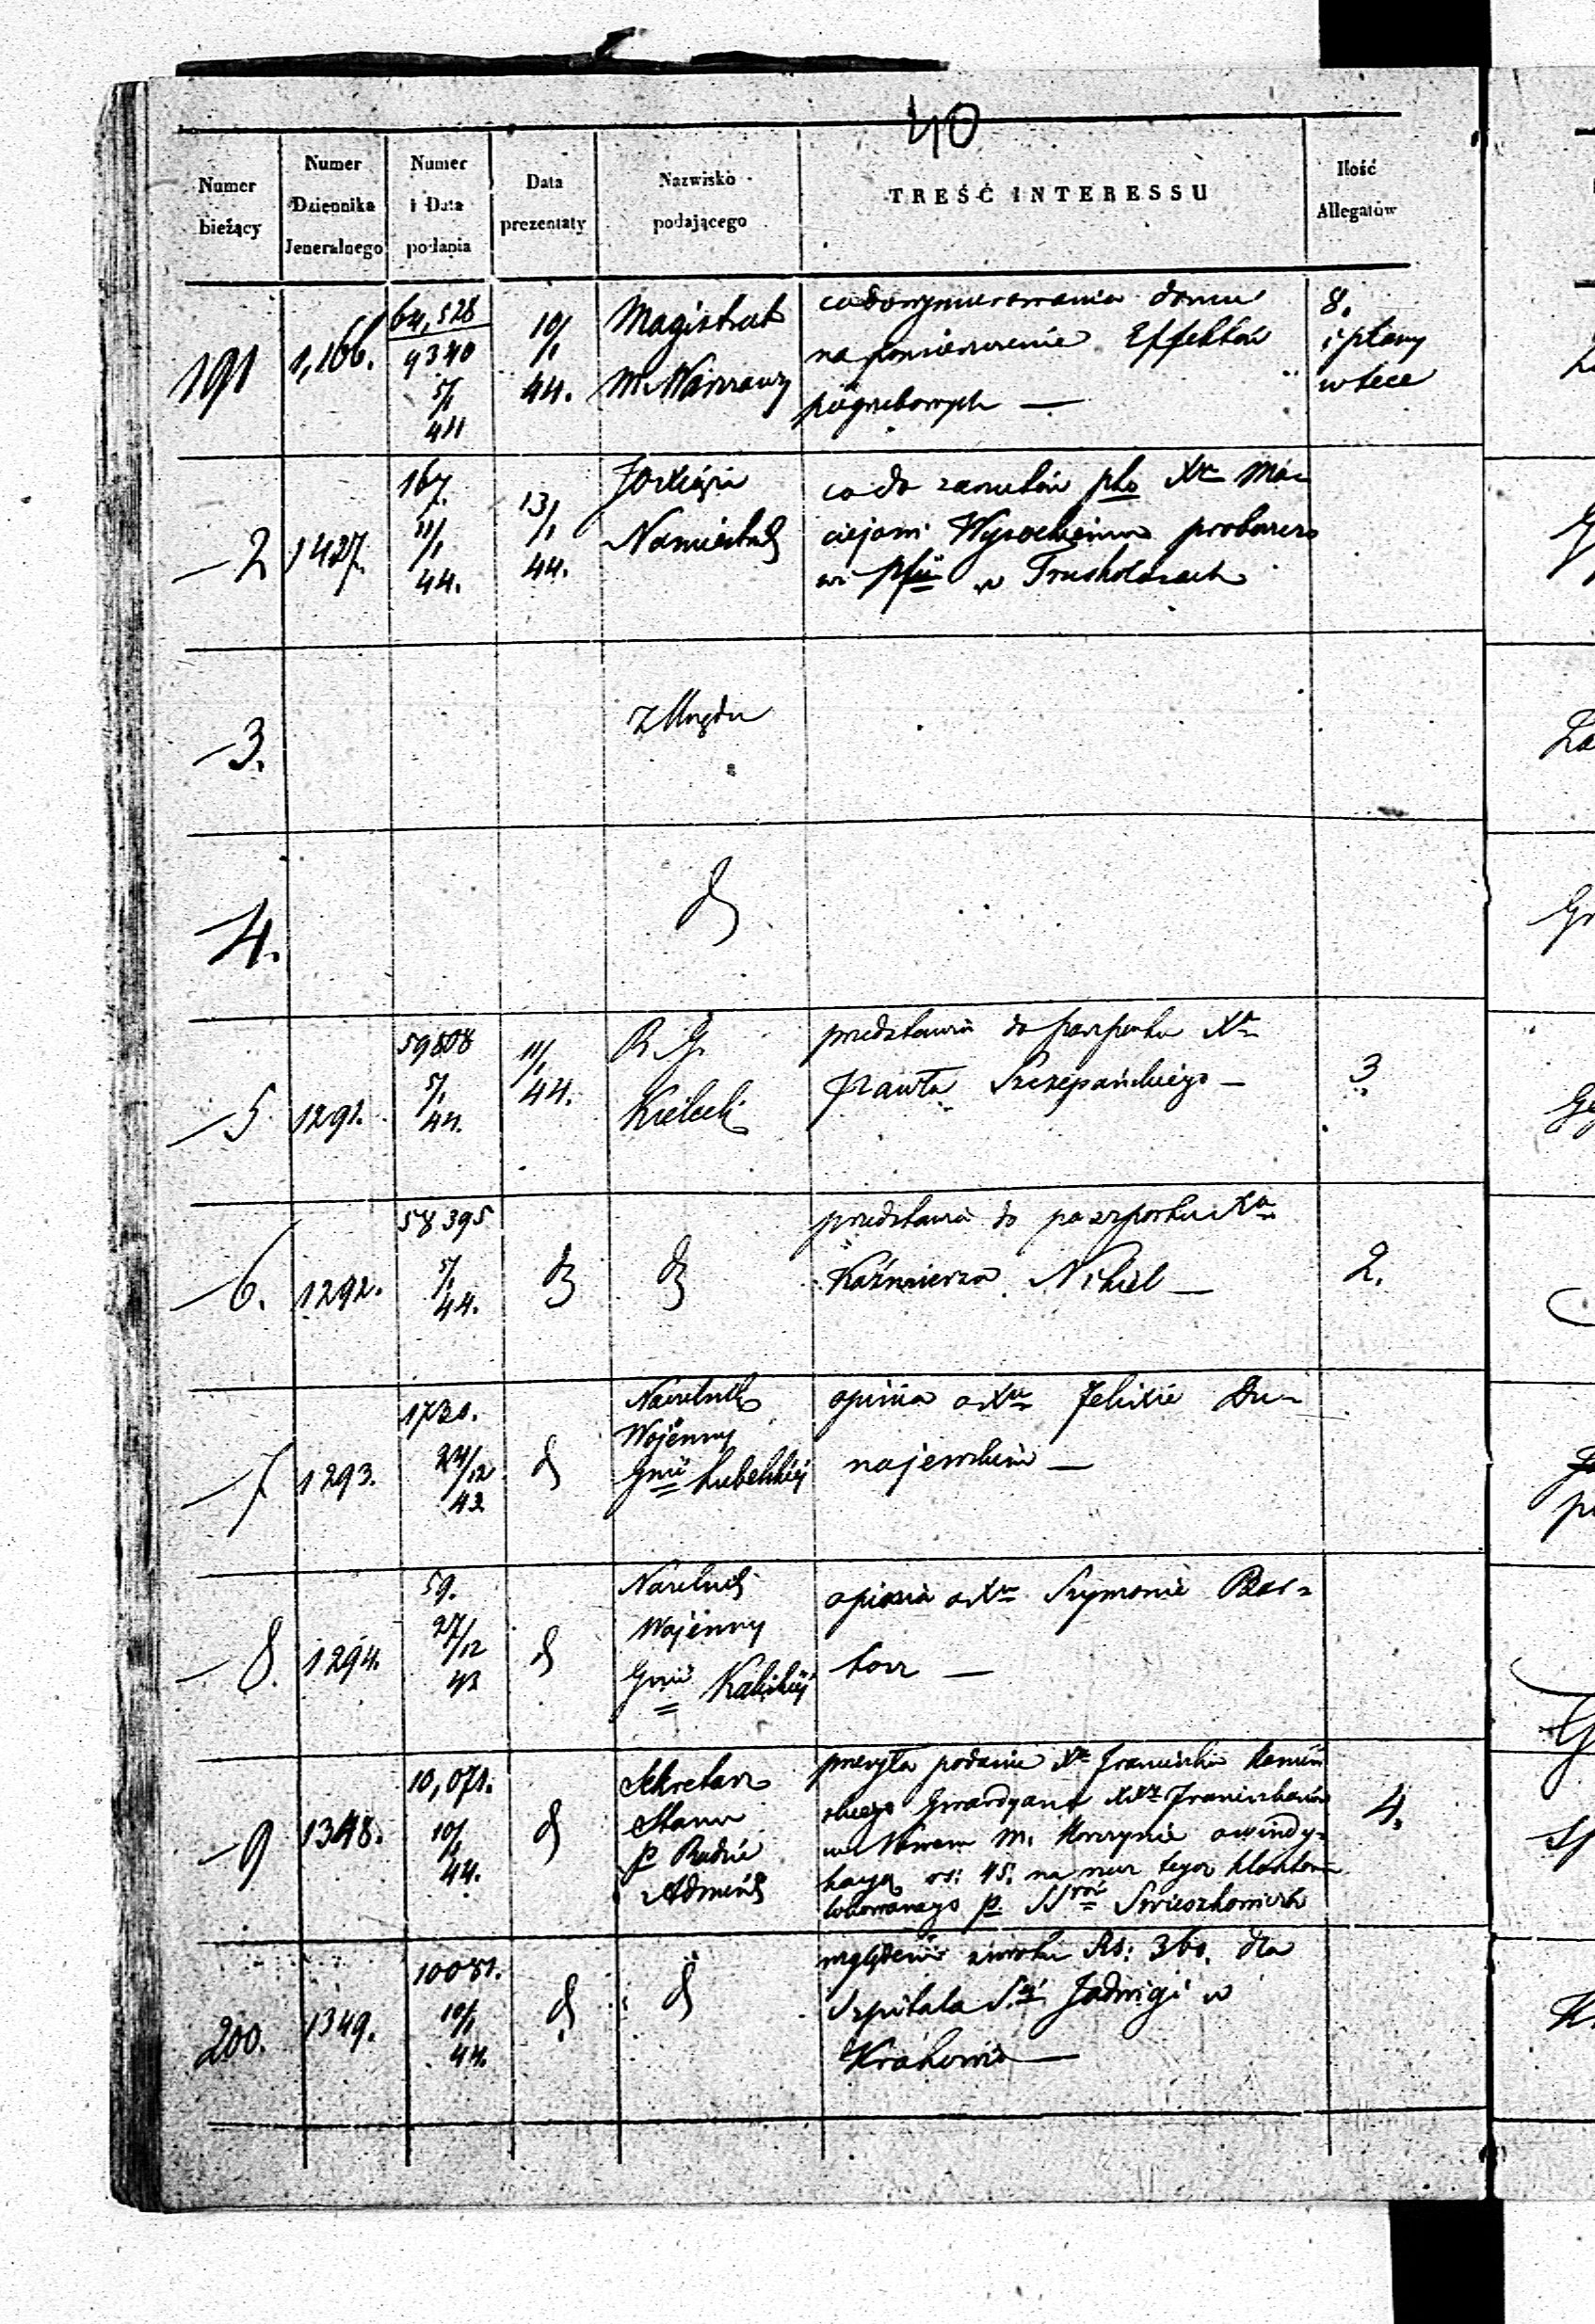 40
Numer bieżący
Numer Dziennika Jeneralnego
Numer i Data podania
Data prezentaty
Nazwisko podającego
TREŚĆ INTERESSU
Ilość Allegatów
191
1,166.
64,528
9340
5/1
10/1
44.
Magistrat
M. Warszawy
domu
na pomieszczenie Effektów
pogrzebowych —
8.
i plany
w tece
2
1427.
167.
11/1
44.
13/1
44.
Namiestnik
co do zarzutów pko Xu Ma-
ciejowi Wysockiemu proboszczo
wi pfii w Truskolasach
3.
z Urzędu
4.
d
5
1291.
59808
5/1
44.
11/1
44.
R. G.
Kielecki
przedstawia do paszportu Xa
Pawła Szczepańskiego —
3
6.
1292.
58395
5/1
44.
d
d
przedstawia do paszportu Xa
Kaźmierza Nikiel —
2.
7
1293.
1731.
24/12
43
d
Naczelnik
Wojenny
Gnii Lubelskiej
opinia o Xu Felixie Du-
najewskim —
8.
1294.
59.
27/12
43
d
Naczelnik
Wojenny
Gnii Kaliskiej
opinia o Xu Szymonie
—
9
1348.
10,071.
10/1
44.
d
Sekretarz
Stanu
p Radzie
Admin
przesyła podanie Xa Franciszka
Gwardyana XXX Franciszkanów
w Nowem M. Korczynie o windy-
kacyą rs: 45. na rzecz tegoż klasztoru
p. SSrów
4.
200.
1349.
10081.
10/1
44.
d
d
względem zwrotu Rs: 360. dla
Szpitala S. Jadwigi w
Krakowie —